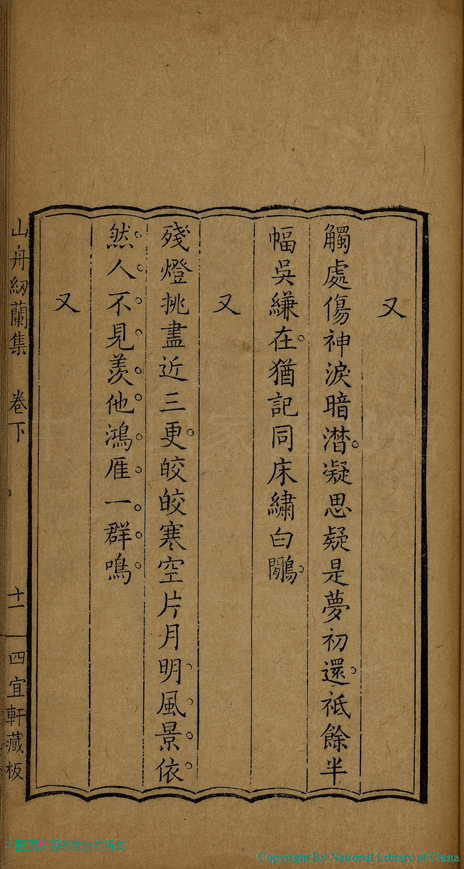 又
觸處傷神淚暗潜凝思疑是夢初還祗餘半
幅吳縑在猶記同床繡白鷴
又
殘燈挑盡近三更皎皎寒空片月明風景依
然人不見羨他鴻雁一群鳴
又
山舟紉蘭集 卷下 十一 四宜軒藏板
Copyright By National Library of China